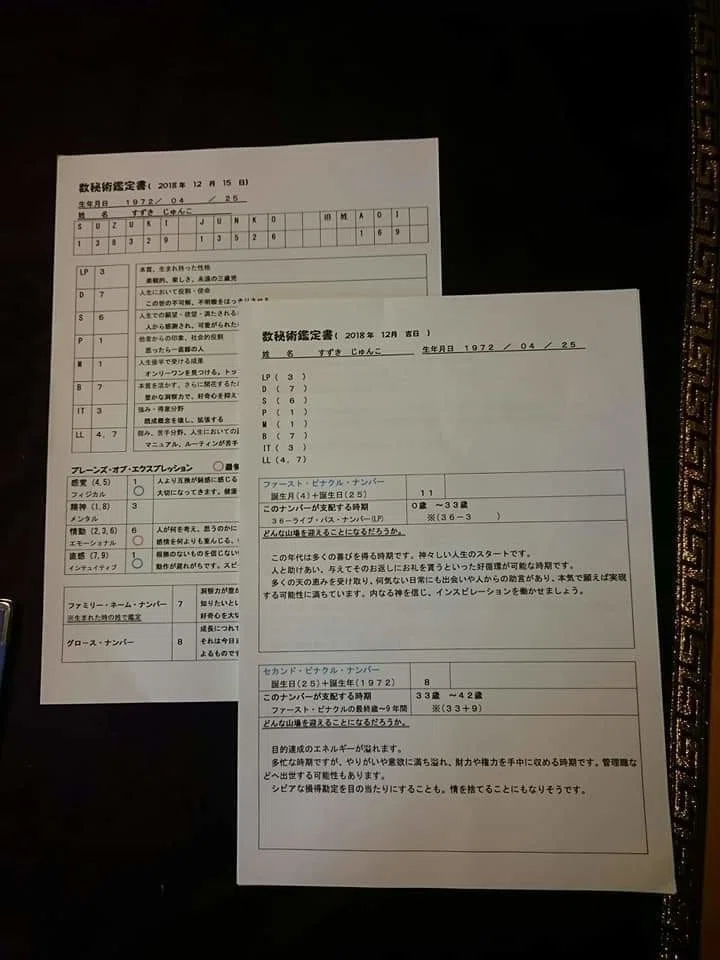 数秘術鑑定書( 2018年 12月 15日)
生年月日 1972/ 04 / 25
姓 名 すずき じゅんこ
S U Z U K I J U N K O 旧 姓 A O I
1 3 8 3 2 9 1 3 5 2 6 1 6 9
LP 3 本質、生まれ持った性格
楽観的、楽しさ、永遠の三歳児
D 7 人生において役割・使命
この世の不可解、不明瞭をはっきりさせる
S 6 人生での願望・欲望・満たされる
人から感謝され、可愛がられた
P 1 他者からの印象、社会的役割
思ったら一直線の人
M 1 人生後半で受ける成果
オンリーワンを見つける。トッ
B 7 本質を活かす、さらに開花するた
豊かな洞察力で、好奇心を抑え
IT 3 強み・得意分野
既成概念を壊し、拡張する
LL 4,7 弱み、苦手分野、人生においての
マニュアル、ルーティンが苦手
プレーンズ・オブ・エクスプレッション ○最
感覚 (4,5) 1 人より五感が鈍感に感じる
フィジカル ○ 大切になってきます。健康
精神 (1,8) 3
メンタル
情動 (2,3,6) 6 人が何を考え、思うのかに
エモーショナル ○ 感情を何よりも重んじる、
直感 (7,9) 1 根拠のないものを信じない
インテュイティブ ○ 動作が遅れがちです。スピ
ファミリー・ネーム・ナンバー 7 洞察力が豊か
知りたいとい
※生まれた時の姓で鑑定 好奇心を大切
グロース・ナンバー 8 成長につれて
それは今日ま
よるものです
数秘術鑑定書( 2018年 12月 吉日 )
姓 名 すずき じゅんこ 生年月日 1972 / 04 / 25
LP( 3 )
D ( 7 )
S ( 6 )
P ( 1 )
M ( 1 )
B ( 7 )
IT( 3 )
LL(4,7)
ファースト・ピナクル・ナンバー
誕生月(4)+誕生日(25) 11
このナンバーが支配する時期 0歳 ～33歳
36－ライフ・パス・ナンバー(LP) ※(36－3 )
どんな山場を迎えることになるだろうか。
この年代は多くの喜びを得る時期です。神々しい人生のスタートです。
人と助けあい、与えてそのお返しにお礼を貰うといった好循環が可能な時期です。
多くの天の恵みを受け取り、何気ない日常にも出会いや人からの助言があり、本気で願えば実現
する可能性に満ちています。内なる神を信じ、インスピレーションを働かせましょう。
セカンド・ピナクル・ナンバー
誕生日(25)+誕生年(1972) 8
このナンバーが支配する時期 33歳 ～42歳
ファースト・ピナクルの最終歳～9年間 ※(33+9)
どんな山場を迎えることになるだろうか。
目的達成のエネルギーが溢れます。
多忙な時期ですが、やりがいや意欲に満ち溢れ、財力や権力を手中に収める時期です。管理職な
どへ出世する可能性もあります。
シビアな損得勘定を目の当たりにすることも。情を捨てることにもなりそうです。